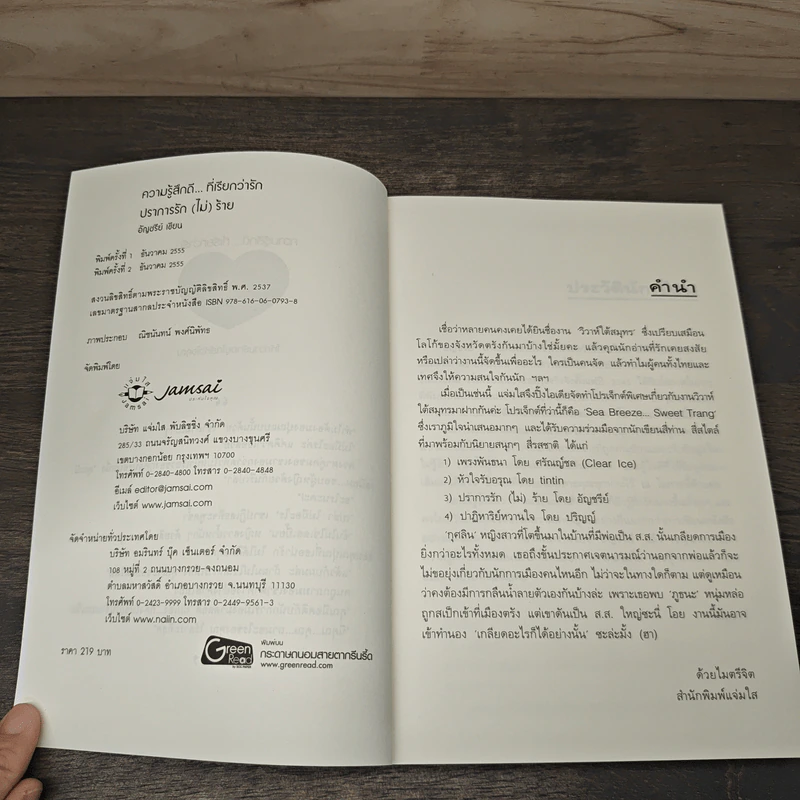 ความรู้สึกดี... ที่เรียกว่ารัก
ปราการรัก (ไม่) ร้าย
อัญชรีย์ เขียน
พิมพ์ครั้งที่ 1 ธันวาคม 2555
พิมพ์ครั้งที่ 2 ธันวาคม 2555
สงวนลิขสิทธิ์ตามพระราชบัญญัติลิขสิทธิ์ พ.ศ. 2537
เลขมาตรฐานสากลประจำหนังสือ ISBN 978-616-06-0793-8
ภาพประกอบ ณิชนันทน์ พงศ์นิพัทธ
จัดพิมพ์โดย
แจ่มใส
jamsai
Jamsai
บริษัท แจ่มใส พับลิชชิ่ง จำกัด
285/33 ถนนจรัญสนิทวงศ์ แขวงบางขุนศรี
เขตบางกอกน้อย กรุงเทพฯ 10700
โทรศัพท์ 0-2840-4800 โทรสาร 0-2840-4848
อีเมล์ editor@jamsai.com
เว็บไซต์ www.jamsai.com
จัดจำหน่ายทั่วประเทศโดย
บริษัท อมรินทร์ บุ๊ค เซ็นเตอร์ จำกัด
108 หมู่ที่ 2 ถนนบางกรวย-จงถนอม
ตำบลมหาสวัสดิ์ อำเภอบางกรวย จ.นนทบุรี 11130
โทรศัพท์ 0-2423-9999 โทรสาร 0-2449-9561-3
เว็บไซต์ www.naiin.com
ราคา 219 บาท
Green Read
พิมพ์บน
กระดาษถนอมสายตากรีนรี้ด
www.greenread.com
คำนำ
เชื่อว่าหลายคนคงเคยได้ยินชื่องาน 'วิวาห์ใต้สมุทร' ซึ่งเปรียบเสมือน
โลโก้ของจังหวัดตรังกันมาบ้างใช่มั้ยคะ แล้วคุณนักอ่านที่รักเคยสงสัย
หรือเปล่าว่างานนี้จัดขึ้นเพื่ออะไร ใครเป็นคนจัด แล้วทำไมผู้คนทั้งไทยและ
เทศจึงให้ความสนใจกันนัก ฯลฯ
เมื่อเป็นเช่นนี้ แจ่มใสจึงปิ๊งไอเดียจัดทำโปรเจ็กต์พิเศษเกี่ยวกับงานวิวาห์
ใต้สมุทรมาฝากกันค่ะ โปรเจ็กต์ที่ว่านี้ก็คือ 'Sea Breeze... Sweet Trang'
ซึ่งเราภูมิใจนำเสนอมากๆ และได้รับความร่วมมือจากนักเขียนสี่ท่าน สี่สไตล์
ที่มาพร้อมกับนิยายสนุกๆ สี่รสชาติ ได้แก่
1) เพรงพันธนา โดย ศรัณญ์ชล (Clear Ice)
2) หัวใจรับอรุณ โดย tintin
3) ปราการรัก (ไม่) ร้าย โดย อัญชรีย์
4) ปาฏิหาริย์หวานใจ โดย ปริญญ์
'กุศลิน' หญิงสาวที่โตขึ้นมาในบ้านที่มีพ่อเป็น ส.ส. นั้นเกลียดการเมือง
ยิ่งกว่าอะไรทั้งหมด เธอถึงขั้นประกาศเจตนารมณ์ว่านอกจากพ่อแล้วก็จะ
ไม่ขอยุ่งเกี่ยวกับนักการเมืองคนไหนอีก ไม่ว่าจะในทางใดก็ตาม แต่ดูเหมือน
ว่าคงต้องมีการกลืนน้ำลายตัวเองกันบ้างล่ะ เพราะเธอพบ 'ภูธนะ' หนุ่มหล่อ
ถูกสเป็กเข้าที่เมืองตรัง แต่เขาดันเป็น ส.ส. ใหญ่ซะนี่ โอย งานนี้มันอาจ
เข้าทำนอง 'เกลียดอะไรก็ได้อย่างนั้น' ซะล่ะมั้ง (ฮา)
ด้วยไมตรีจิต
สำนักพิมพ์แจ่มใส